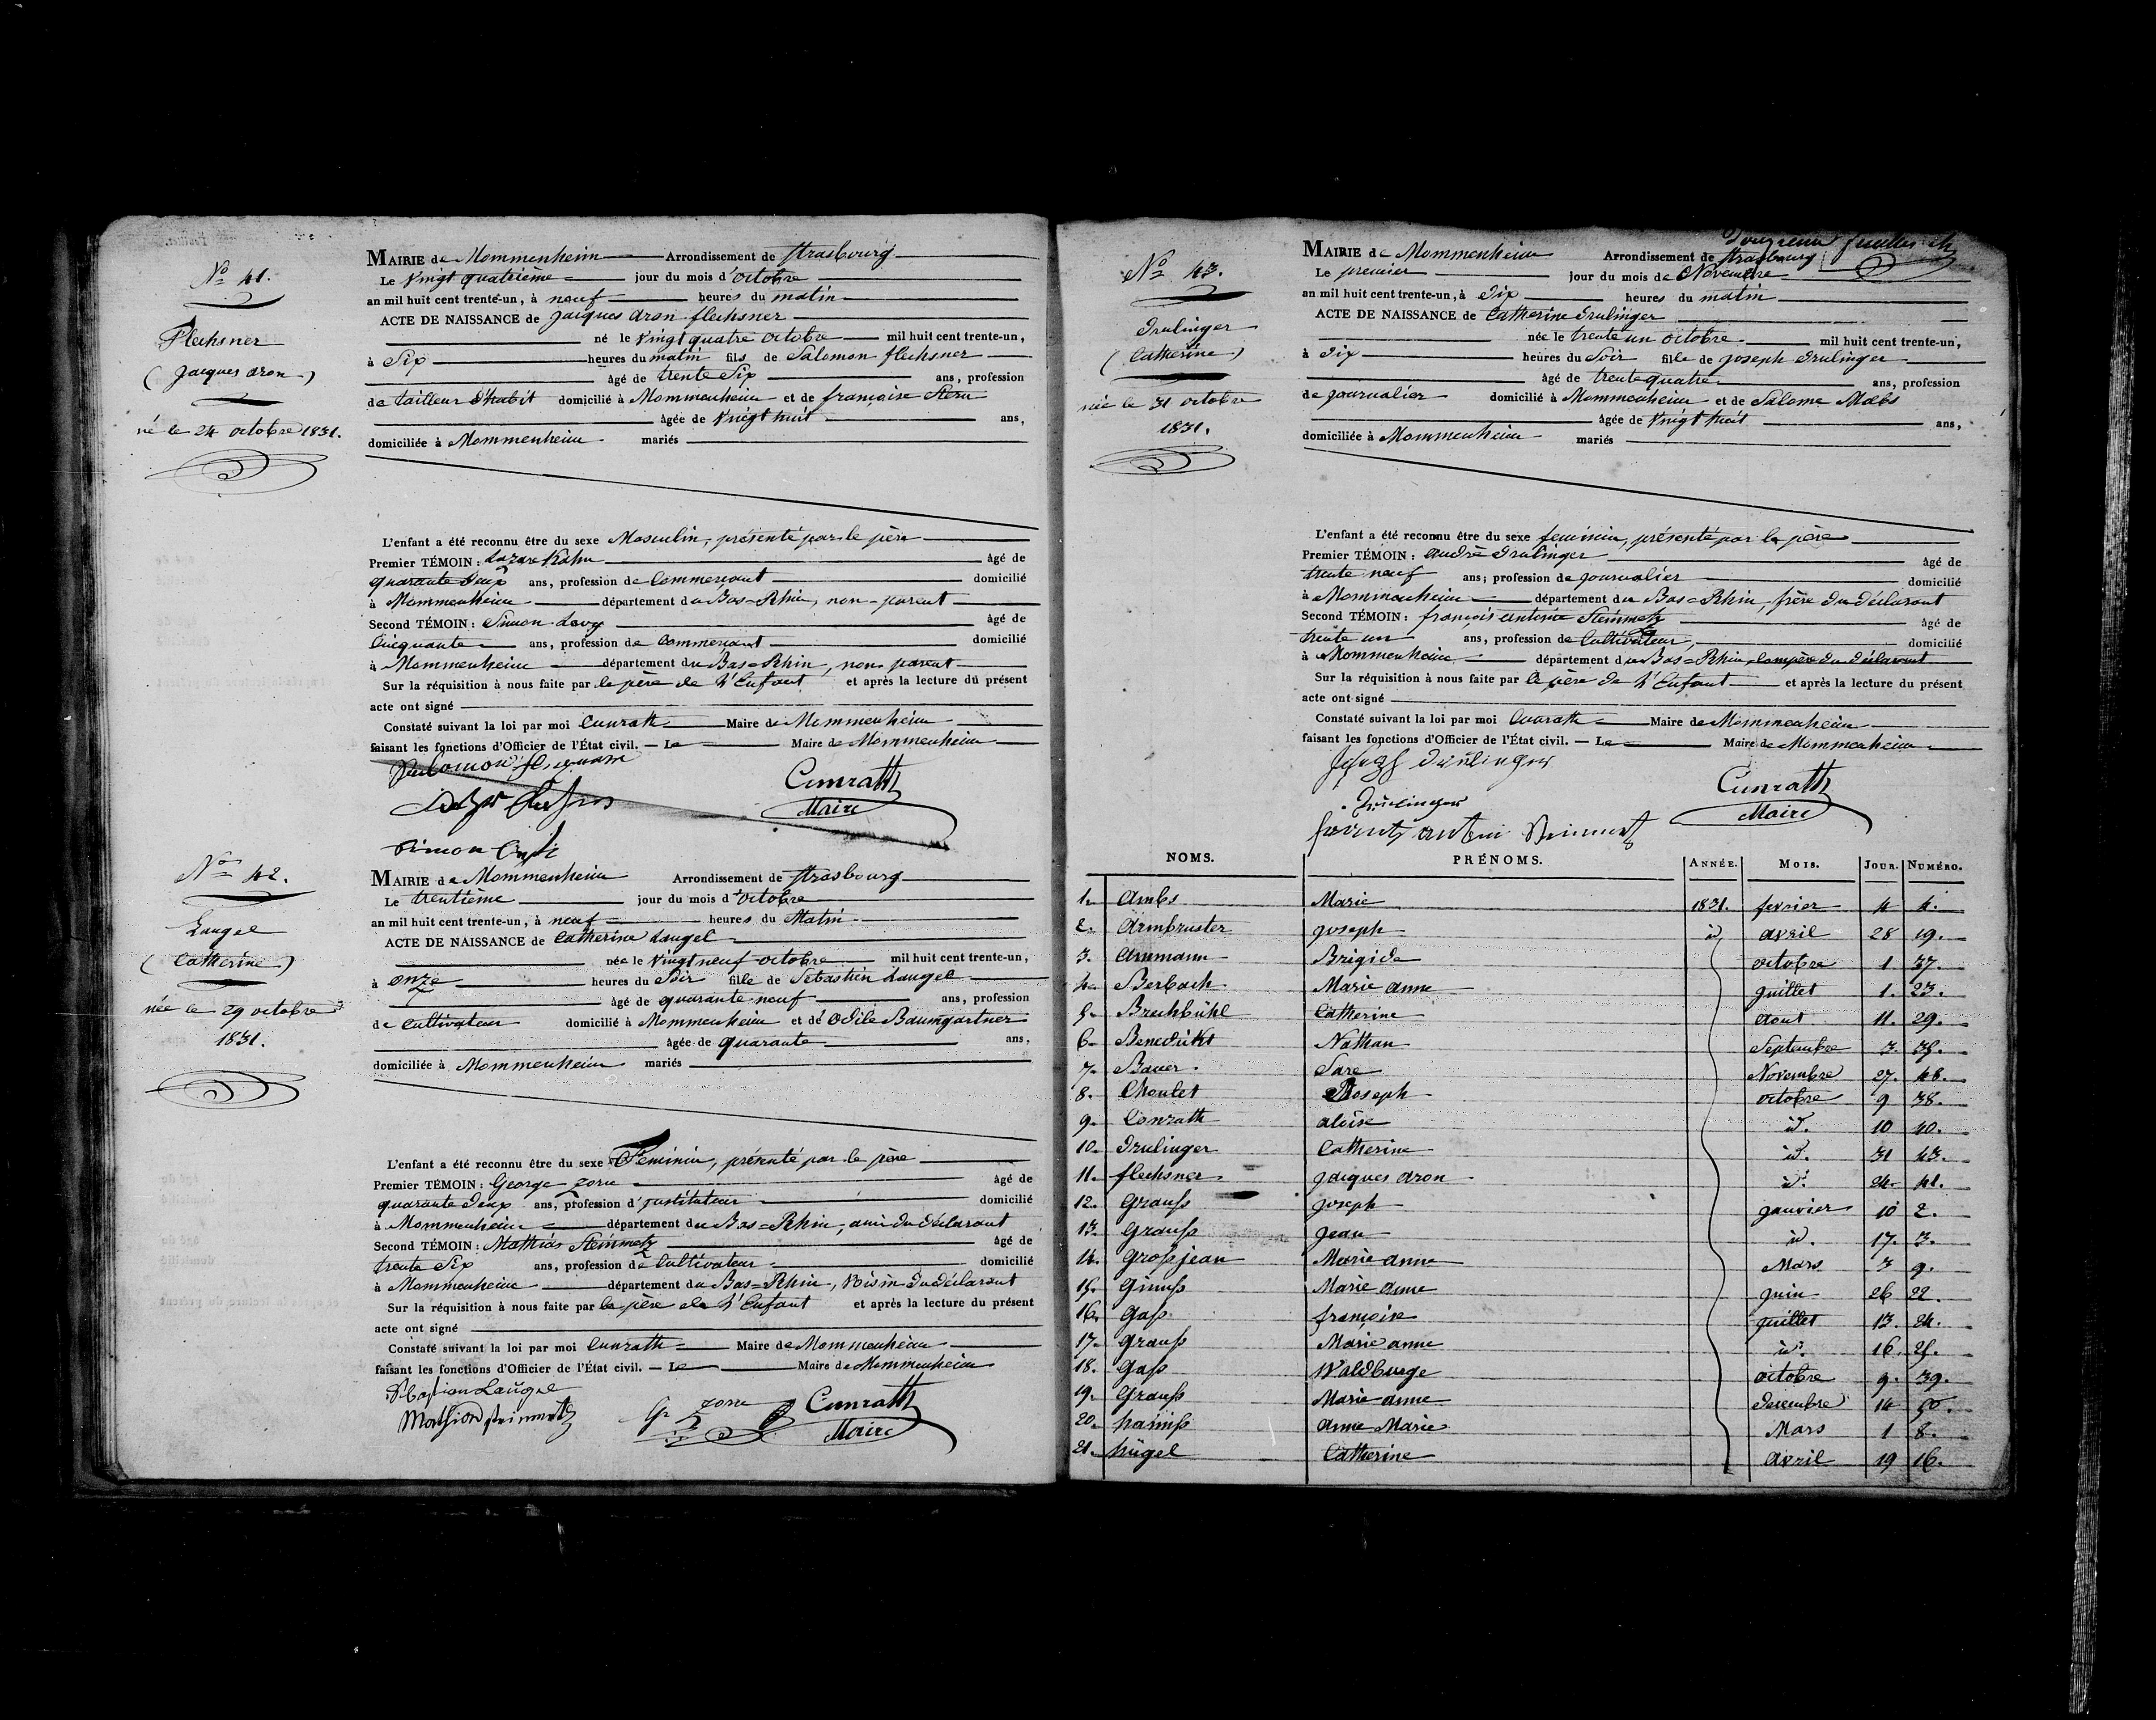 No 41.
Flechsner
(Jacques Aron)
né le 24 octobre 1831.
MAIRIE de Mommenheim Arrondissement de Strasbourg
Le Vingt quatrième jour du mois d'octobre
an mil huit cent trente-un, à neuf heures du matin
ACTE DE NAISSANCE de Jacques Aron flechsner
né le Vingt quatre octobre mil huit cent trente-un,
à Six heures du matin fils de Salomon flechsner
âgé de trente Six ans, profession
de tailleur d'habit domicilié à Mommenheim et de françoise Stern
âgée de Vingt huit ans,
domiciliée à Mommenheim mariés
L'enfant a été reconnu être du sexe Masculin, présenté par le père
Premier TÉMOIN: Lazare Kahn âgé de
quarante Deux ans, profession de Commercant domicilié
à Mommenheim département du Bas=Rhin, non-parent
Second TÉMOIN: Simon Levy âgé de
Cinquante ans, profession de Commercant domicilié
à Mommenheim département du Bas=Rhin, non-parent
Sur la réquisition à nous faite par le père de l'Enfant et après la lecture du présent
acte ont signé
Constaté suivant la loi par moi Cunrath Maire de Mommenheim
faisant les fonctions d'Officier de l'État civil. — Le Maire de Mommenheim
Salomon
Cunrath
Maire
Simon
No 42.
Laugel
(Catherine)
née le 29 octobre
1831.
MAIRIE de Mommenheim Arrondissement de Strasbourg
Le trentième jour du mois d'octobre
an mil huit cent trente-un, à neuf heures du Matin
ACTE DE NAISSANCE de Catherine Laugel
née le Vingt neuf octobre mil huit cent trente-un,
à onze heures du Soir fille de Sebastien Laugel
âgé de quarante neuf ans, profession
de Cultivateur domicilié à Mommenheim et de Odile Baumgartner
âgée de quarante ans,
domiciliée à Mommenheim mariés
L'enfant a été reconnu être du sexe Feminin, présenté par le père
Premier TÉMOIN: George Zorn âgé de
quarante Deux ans, profession d'justituteur domicilié
à Mommenheim département du Bas=Rhin, ami du déclarant
Second TÉMOIN: Mathias Steinmetz âgé de
trente Six ans, profession de Cultivateur domicilié
à Mommenheim département du Bas=Rhin, Voisin du déclarant
Sur la réquisition à nous faite par le père de l'Enfant et après la lecture du présent
acte ont signé
Constaté suivant la loi par moi Cunrath Maire de Mommenheim
faisant les fonctions d'Officier de l'État civil. — Le Maire de Mommenheim
Sebastian Laugel
Mathias Steinmetz Gr Zorn Cunrath
Maire
No 43.
Drulinger
(Catherine)
née le 31 octobre
1831.
MAIRIE de Mommenheim Arrondissement de Strasbourg
Le premier jour du mois de Novembre
an mil huit cent trente-un, à Dix heures du matin
ACTE DE NAISSANCE de Catherine Drulinger
née le trente un octobre mil huit cent trente-un,
à Dix heures du Soir fille de joseph Drulinger
âgé de trente quatre ans, profession
de journalier domicilié à Mommenheim et de Salome Moebs
âgée de Vingt huit ans,
domiciliée à Mommenheim mariés
L'enfant a été reconnu être du sexe feminin, présenté par le père
Premier TÉMOIN: André Drulinger âgé de
trente neuf ans; profession de journalier domicilié
à Mommenheim département du Bas=Rhin, frère du déclarant
Second TÉMOIN: françois antoine Steinmetz âgé de
trente un ans, profession de Cultivateur, domicilié
à Mommenheim département du Bas=Rhin, Compère du déclarant
Sur la réquisition à nous faite par le père de l'Enfant et après la lecture du présent
acte ont signé
Constaté suivant la loi par moi Cunrath Maire de Mommenheim
faisant les fonctions d'Officier de l'État civil. — Le Maire de Mommenheim
Joseph Drulinger
Drulinger
Cunrath
Maire
frantz antoni Steinmetz
NOMS. PRÉNOMS. ANNÉE. MOIS. JOUR. NUMÉRO.
1. Ambs Marie 1831. fevrier 4 4.
2. Armbruster joseph id avril 28 19.
3. Ammann Brigide octobre 1 37.
4. Berbach Marie anne juillet 1. 23.
5. Brechbühl Catherine Aout 11. 29.
6. Benedickt Nathan Septembre 3. 35.
7. Bauer Sare Novembre 27. 48.
8. Choulet Joseph octobre 9 38.
9. Conrath aloïse id. 10 40.
10. Drulinger Catherine id. 31 43.
11. flechsner Jacques Aron id. 24. 41.
12. Grauß joseph janvier 10 2.
13. Grauß jean id. 17. 3.
14. Großjean Marie anne Mars 3 9.
15. Ginnß Marie Anne juin 26 22.
16. Gaß françoise juillet 13. 24.
17. Grauß Marie anne id. 16. 25.
18. Gaß Waldburge octobre 9. 39.
19. Grauß Marie anne Decembre 14 50.
20. hannß Anne Marie Mars 1 8.
21. hügel Catherine Avril 19 16.